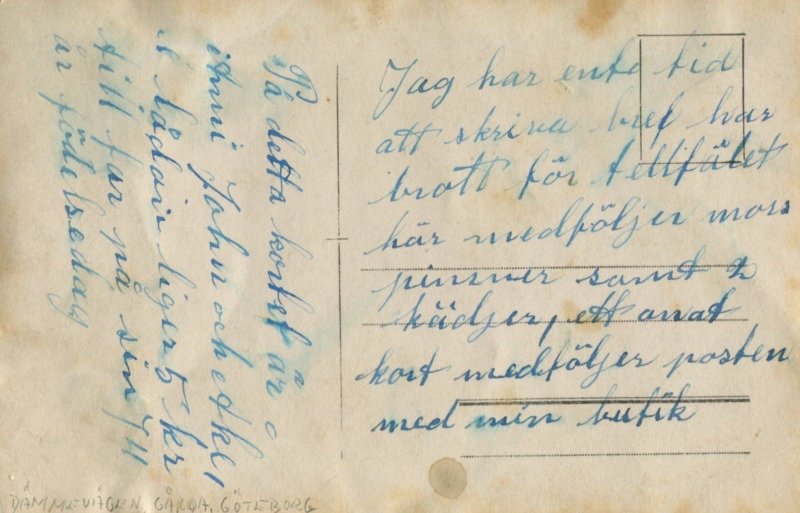 Jag har ente tid
att skriva bref har
brott för tellfälet
här medföljer mors
pinner samt 2
kädjer, ett anat
kort medföljer posten
med min butik
På detta kortet är
Anni John och
i lådan liger 5 kr
till far på sin
år födelsedag
DÄMMEVÄGEN, GÅRDA, GÖTEBORG